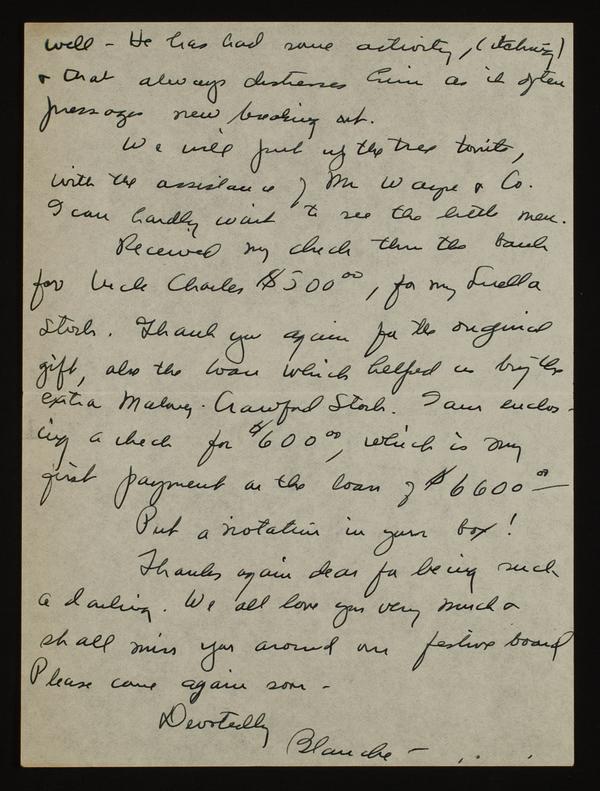 well - He has had some activity, (itching)
& that always distresses him as it often
presages new breaking out.
We will put up the tree tonite,
with the assistance of Mr Wayne & Co.
I can hardly wait to see the little men.
Received my check thru the bank
for Uncle Charles $500⁰⁰, for my Luella
Stock. Thank you again for the original
gift, also the loan which helped us buy the
extra Maloney-Crawford Stock. I am enclos-
ing a check for $600⁰⁰, which is my
first payment on the loan of $6600⁰⁰—
Put a notation in your box!
Thanks again dear for being such
a darling. We all love you very much &
shall miss you around our festive board
Please come again soon -
Devotedly
Blanche -